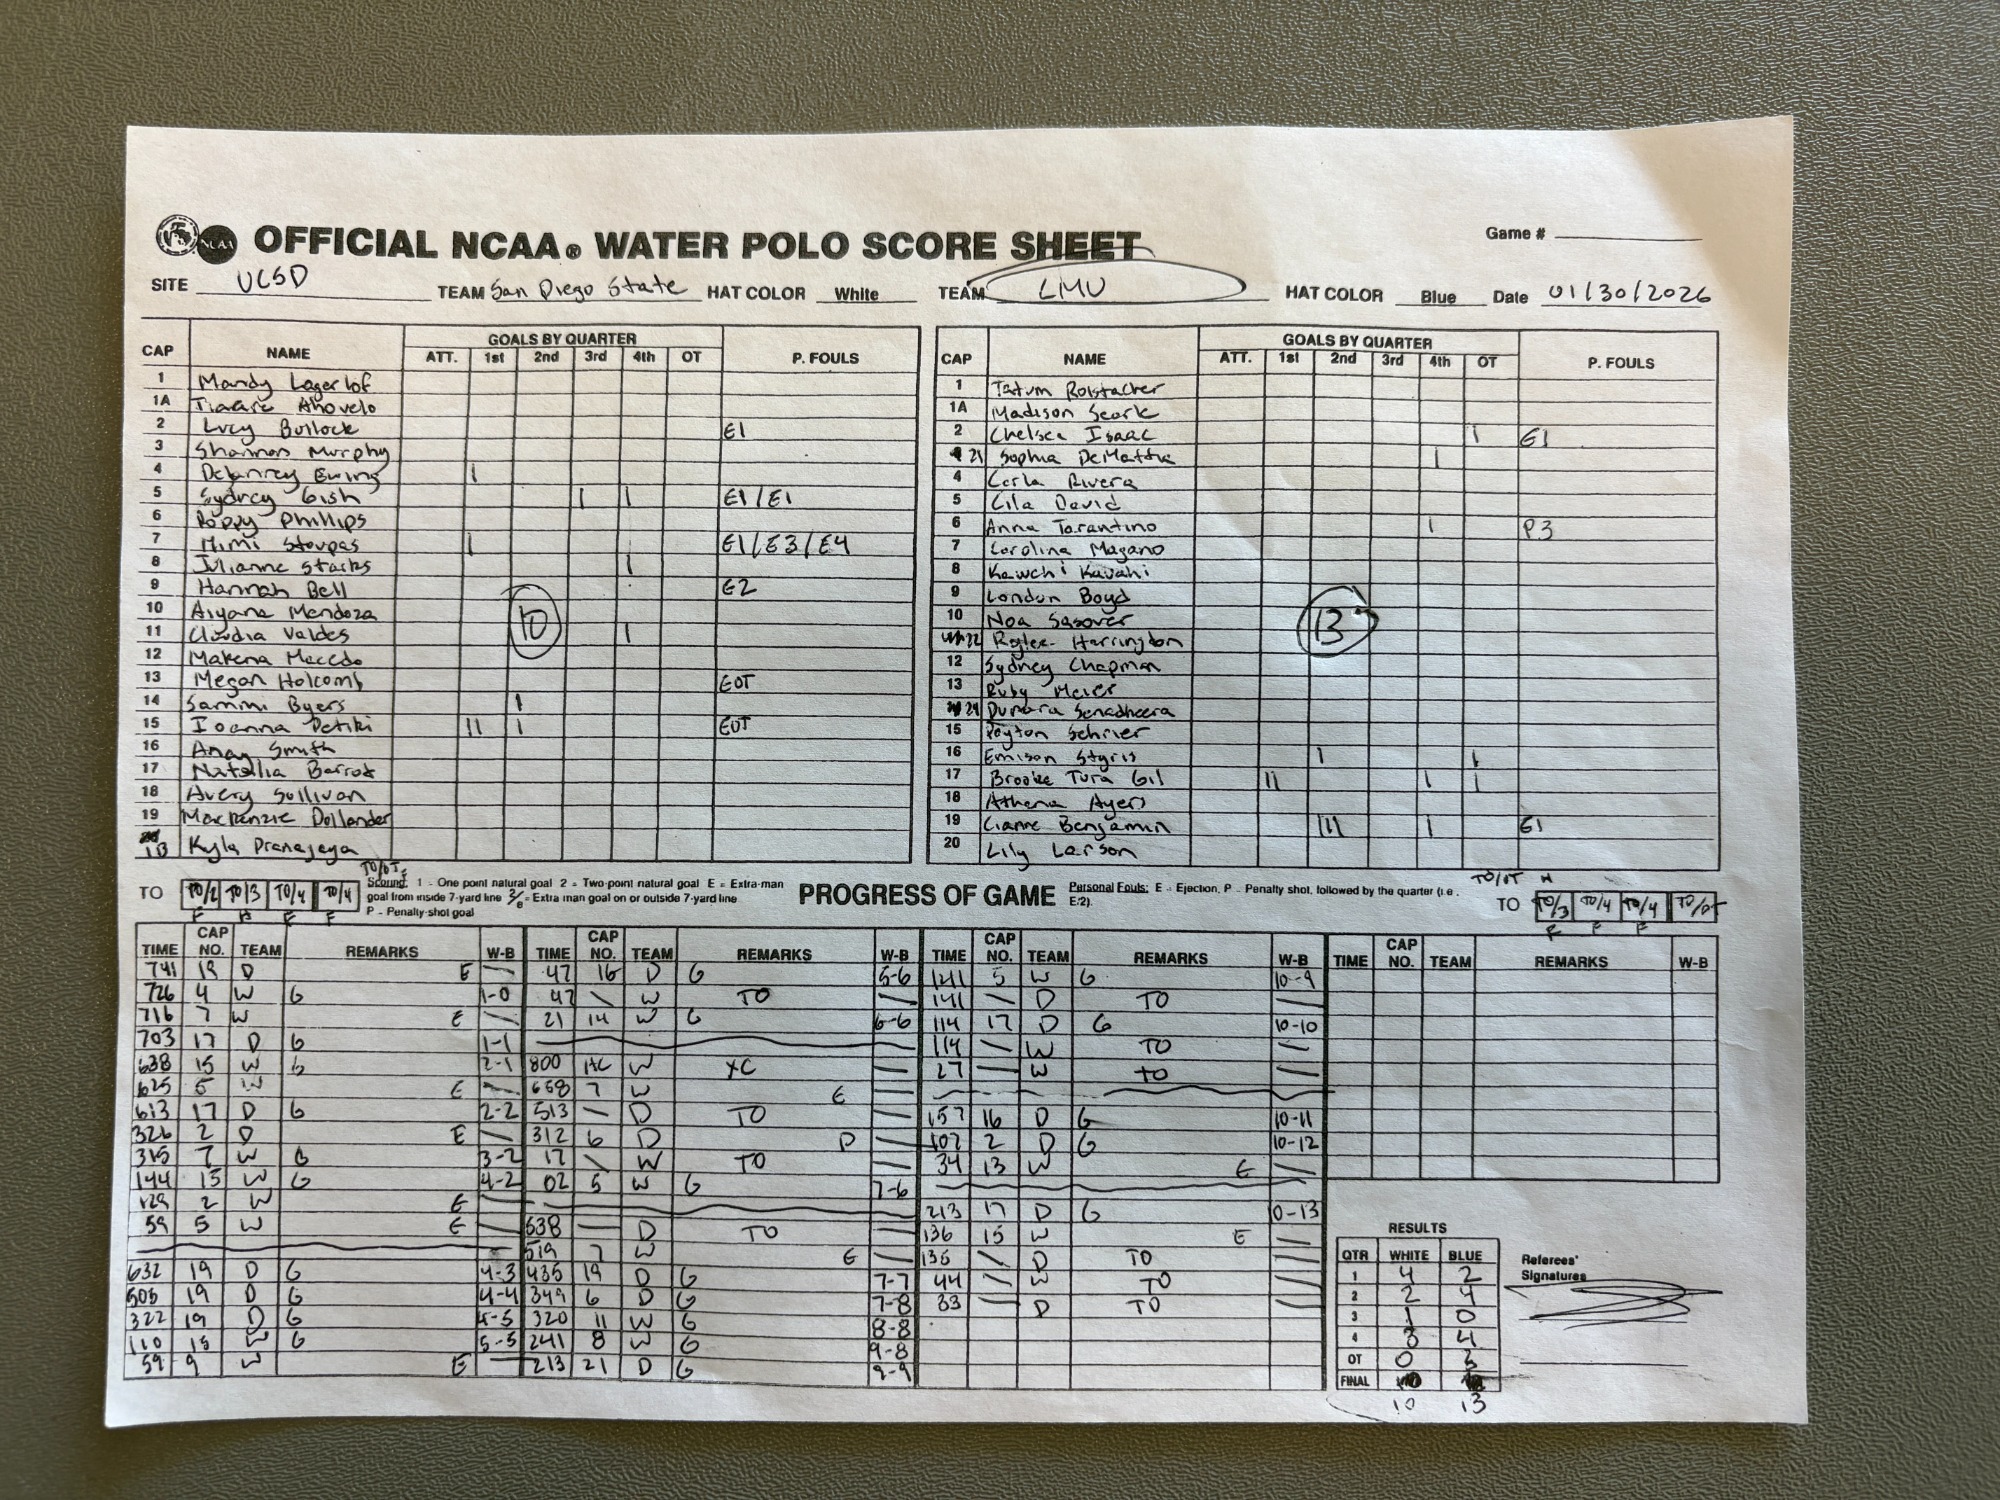 NCAA OFFICIAL NCAA® WATER POLO SCORE SHEET
Game #
SITE UCSD TEAM San Diego State HAT COLOR White TEAM LMU HAT COLOR Blue Date 01/30/2026
CAP NAME GOALS BY QUARTER P. FOULS
ATT. 1st 2nd 3rd 4th OT
1 Mandy Lagerlof
1A Ahovelo
2 Lucy Bullock E1
3 Shannon Murphy
4 Ewing I
5 Sydney Gish I I E1/E1
6 Poppy Phillips
7 Mimi Stoupas I E1/E3/E4
8 Julianne Starks I
9 Hannah Bell E2
10 Aiyana Mendoza
10
11 Claudia Valdes I
12 Makena Macedo
13 Megan Holcomb EOT
14 Sammi Byers I
15 Ioanna Petiki II I EOT
16 Smith
17 Natallia Barrot
18 Avery Sullivan
19 Mackenzie Dollander
Kyla Pranajaya
CAP NAME GOALS BY QUARTER P. FOULS
ATT. 1st 2nd 3rd 4th OT
1 Tatum Rolstacher
1A Madison Seark
2 Chelsea Isaac I E1
21 Sophia DeMattia I
4 Carla Rivera
5 Lila David
6 Anna Tarantino I P3
7 Carolina Magano
8 Kawehi Kauahi
9 London Boyd
10 Noa Sasover
13
22 Rylee Harrington
12 Sydney Chapman
13 Ruby Meier
24 Dunara Senadheera
15 Peyton Schrier
16 Emison Styris I I
17 Brooke Tura Gil II I I
18 Athena Ayers
19 Cianne Benjamin III I E1
20 Lily Larson
TO/OT F
TO TO/2 TO/3 TO/4 TO/4
F F F F
Scoring: 1 - One point natural goal 2 = Two-point natural goal E = Extra-man
goal from inside 7-yard line 2/e = Extra man goal on or outside 7-yard line
P - Penalty-shot goal
PROGRESS OF GAME
Personal Fouls: E = Ejection, P - Penalty shot, followed by the quarter (i.e.
E/2).
TO/OT H
TO TO/3 TO/4 TO/4 TO/OT
F F F
TIME CAP NO. TEAM REMARKS W-B
741 19 D E —
726 4 W G 1-0
716 7 W E —
703 17 D G 1-1
638 15 W G 2-1
625 5 W E —
613 17 D G 2-2
326 2 D E —
315 7 W G 3-2
144 15 W G 4-2
129 2 W E —
59 5 W E —
632 19 D G 4-3
505 19 D G 4-4
322 19 D G 4-5
110 15 W G 5-5
59 9 W E —
TIME CAP NO. TEAM REMARKS W-B
47 16 D G 5-6
47 \ W TO —
21 14 W G 6-6
800 HC W YC —
658 7 W E —
513 — D TO —
312 6 D P —
17 \ W TO —
02 5 W G 7-6
638 — D TO —
519 7 W E —
435 19 D G 7-7
349 6 D G 7-8
320 11 W G 8-8
241 8 W G 9-8
213 21 D G 9-9
TIME CAP NO. TEAM REMARKS W-B
141 5 W G 10-9
141 — D TO —
114 17 D G 10-10
114 — W TO —
27 — W TO —
157 16 D G 10-11
107 2 D G 10-12
34 13 W E —
213 17 D G 10-13
136 15 W E —
135 \ D TO —
44 \ W TO —
33 — D TO —
TIME CAP NO. TEAM REMARKS W-B
RESULTS
QTR WHITE BLUE
1 4 2
2 2 4
3 1 0
4 3 4
OT 0 3
FINAL
10 13
Referees'
Signatures